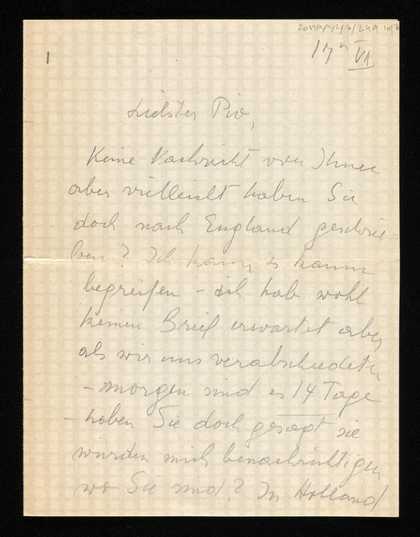 17 VI
1
Liebster Pio,
Keine Nachricht von Ihnen
aber vielleicht haben Sie
doch nach England geschrie-
ben? Ich kann es kaum
begreifen – ich hab wohl
keinen Brief erwartet aber
als wir uns verabschiedeten
– morgen sind es 14 Tage
– haben Sie doch gesagt sie
würden mich benachrichtigen
wo Sie sind? In Holland